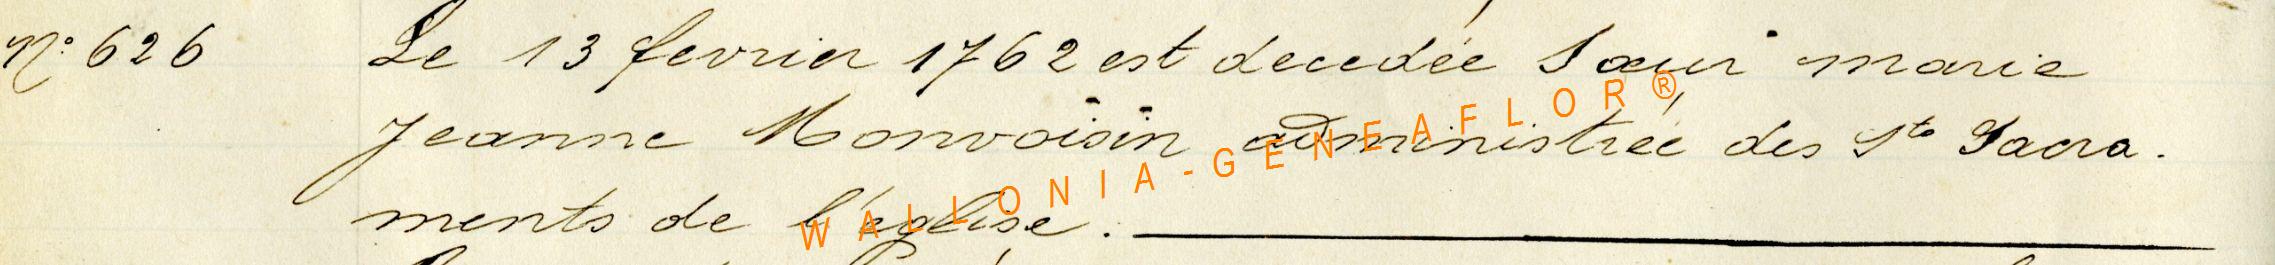 N° 626 Le 13 fevrier 1762 est decedée Sœur marie
Jeanne Monvoisin administrée des Sts Sacra.
ments de l'église.
WALLONIA-GENEAFLOR®